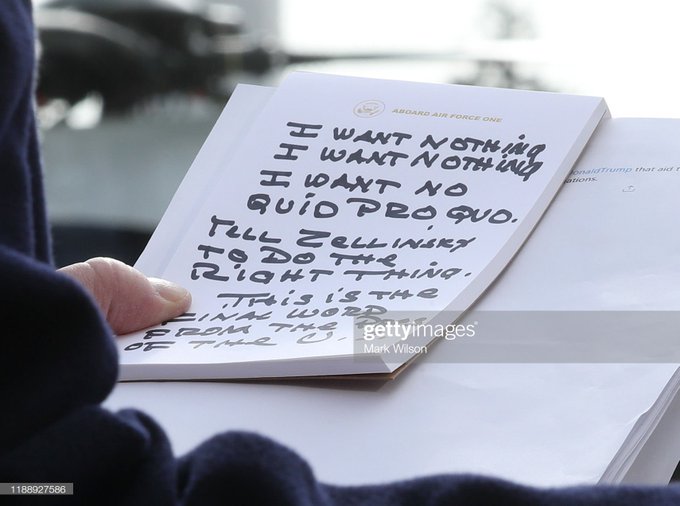 ABOARD AIR FORCE ONE
I WANT NOTHING
I WANT NOTHING
I WANT NO
QUID PRO QUO.
TELL ZELLINSKY
TO DO THE
RIGHT THING.
THIS IS THE
FINAL WORD
FROM THE PRES
OF THE U.S.
onaldTrump that aid t
ations.
gettyimages
Mark Wilson
1188927586